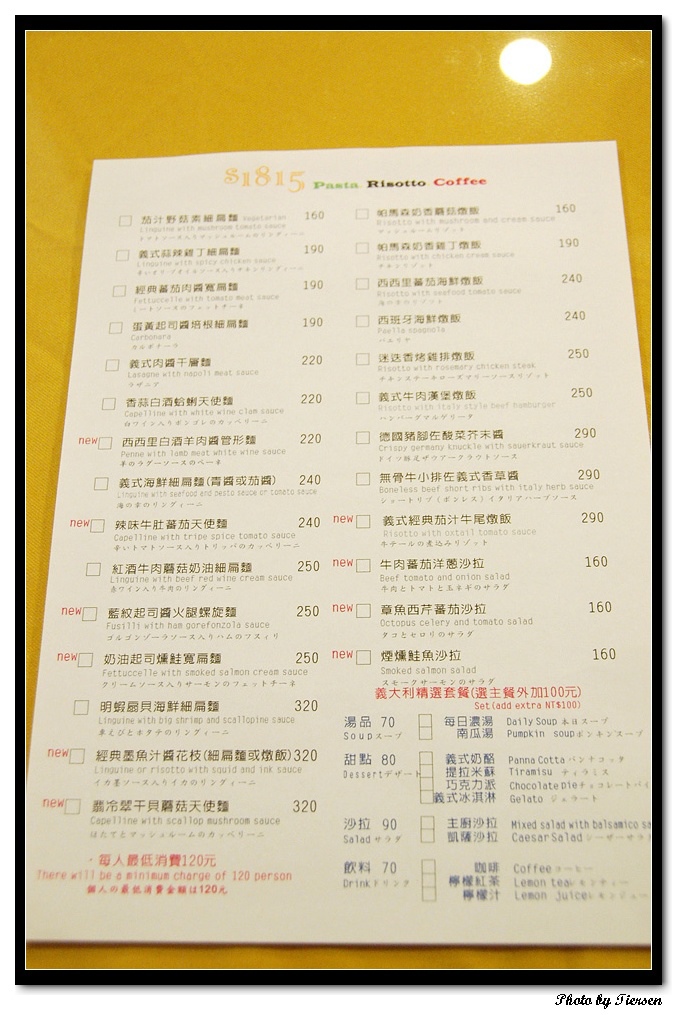 S1815 Pasta. Risotto. Coffee
茄汁野菇素細扁麵 Vegetarian 160
Linguine with mushroom tomato sauce
義式蒜辣雞丁細扁麵 190
Linguine with spicy chicken sauce
經典蕃茄肉醬寬扁麵 190
Fettuccelle with tomato meat sauce
ミートソースのフェットチーネ
蛋黃起司醬培根細扁麵 190
Carbonara
カルボナーラ
義式肉醬千層麵 220
Lanagne with napoli meat sauce
ラザニア
香蒜白酒蛤蜊天使麵 220
Capelline with white wine clam sauce
白ワイン入りボンゴレのカッペリーニ
new 西西里白酒羊肉醬管形麵 220
Penne with lamb meat white wine sauce
羊のラグーソースのペーネ
義式海鮮細扁麵(青醬或茄醬) 240
Linguine with seafood and pesto sauce or tomato sauce
海の幸のリングイーニ
new 辣味牛肚蕃茄天使麵 240
Capelline with tripe spice tomato sauce
辛いトマトソース入りトリッパのカッペリーニ
紅酒牛肉蘑菇奶油細扁麵 250
Linguine with beef red wine cream sauce
赤ワイン入り牛肉のリングイーニ
new 藍紋起司醬火腿螺旋麵 250
Fusilli with ham gorefonzola sauce
ゴルゴンゾーラソース入りハムのフスィリ
new 奶油起司燻鮭寬扁麵 250
Fettuccelle with smoked salmon cream sauce
クリームソース入りサーモンのフェットチーネ
明蝦扇貝海鮮細扁麵 320
Linguine with big shrimp and scallopine sauce
車えびとホタテのリングイーニ
new 經典墨魚汁醬花枝(細扁麵或燉飯) 320
Linguine or risotto with squid and ink sauce
イカ墨ソース入りイカのリングイーニ
new 翡冷翠干貝蘑菇天使麵 320
Capelline with scallop mushroom sauce
ほたてとマッシュルームのカッペリーニ
・每人最低消費120元
There will be a minimum charge of 120 person
個人の最低消費金額は120元
帕馬森奶香蘑菇燉飯 160
Risotto with mushroom and cream sauce
マッシュルームリゾット
帕馬森奶香雞丁燉飯 190
Risotto with chicken cream sauce
チキンリゾット
西西里蕃茄海鮮燉飯 240
Risotto with seafood tomato sauce
海の幸のリゾット
西班牙海鮮燉飯 240
Paella spagnola
パエリヤ
迷迭香烤雞排燉飯 250
Risotto with rosemary chicken steak
チキンステーキローズマリーソースリゾット
義式牛肉漢堡燉飯 250
Risotto with italy style beef hamburger
ハンバーグマルゲリータ
德國豬腳佐酸菜芥末醬 290
Crispy germany knuckle with sauerkraut sauce
ドイツ豚足ザウアークラウトソース
無骨牛小排佐義式香草醬 290
Boneless beef short ribs with italy herb sauce
ショートリブ(ボンレス)イタリアハーブソース
new 義式經典茄汁牛尾燉飯 290
Risotto with oxtail tomato sauce
牛テールの煮込みリゾット
new 牛肉蕃茄洋蔥沙拉 160
Beef tomato and onion salad
牛肉とトマトと玉ネギのサラダ
new 章魚西芹蕃茄沙拉 160
Octopus celery and tomato salad
タコとセロリのサラダ
new 煙燻鮭魚沙拉 160
Smoked salmon salad
スモークサーモンのサラダ
義大利精選套餐(選主餐外加100元)
Set(add extra NT$100)
湯品 70 每日濃湯 Daily Soup 本日スープ
Soup スープ 南瓜湯 Pumpkin soup ポンキンスープ
甜點 80 義式奶酪 Panna Cotta パンナコッタ
Dessert デザート 提拉米蘇 Tiramisu ティラミス
巧克力派 Chocolate Pie チョコレートパイ
義式冰淇淋 Gelato ジェラート
沙拉 90 主廚沙拉 Mixed salad with balsamico sa
Salad サラダ 凱薩沙拉 Caesar Salad シーザーサラダ
飲料 70 咖啡 Coffee コーヒー
Drink ドリンク 檸檬紅茶 Lemon tea レモンティー
檸檬汁 Lemon juice レモンジュー
Photo by Tiersen